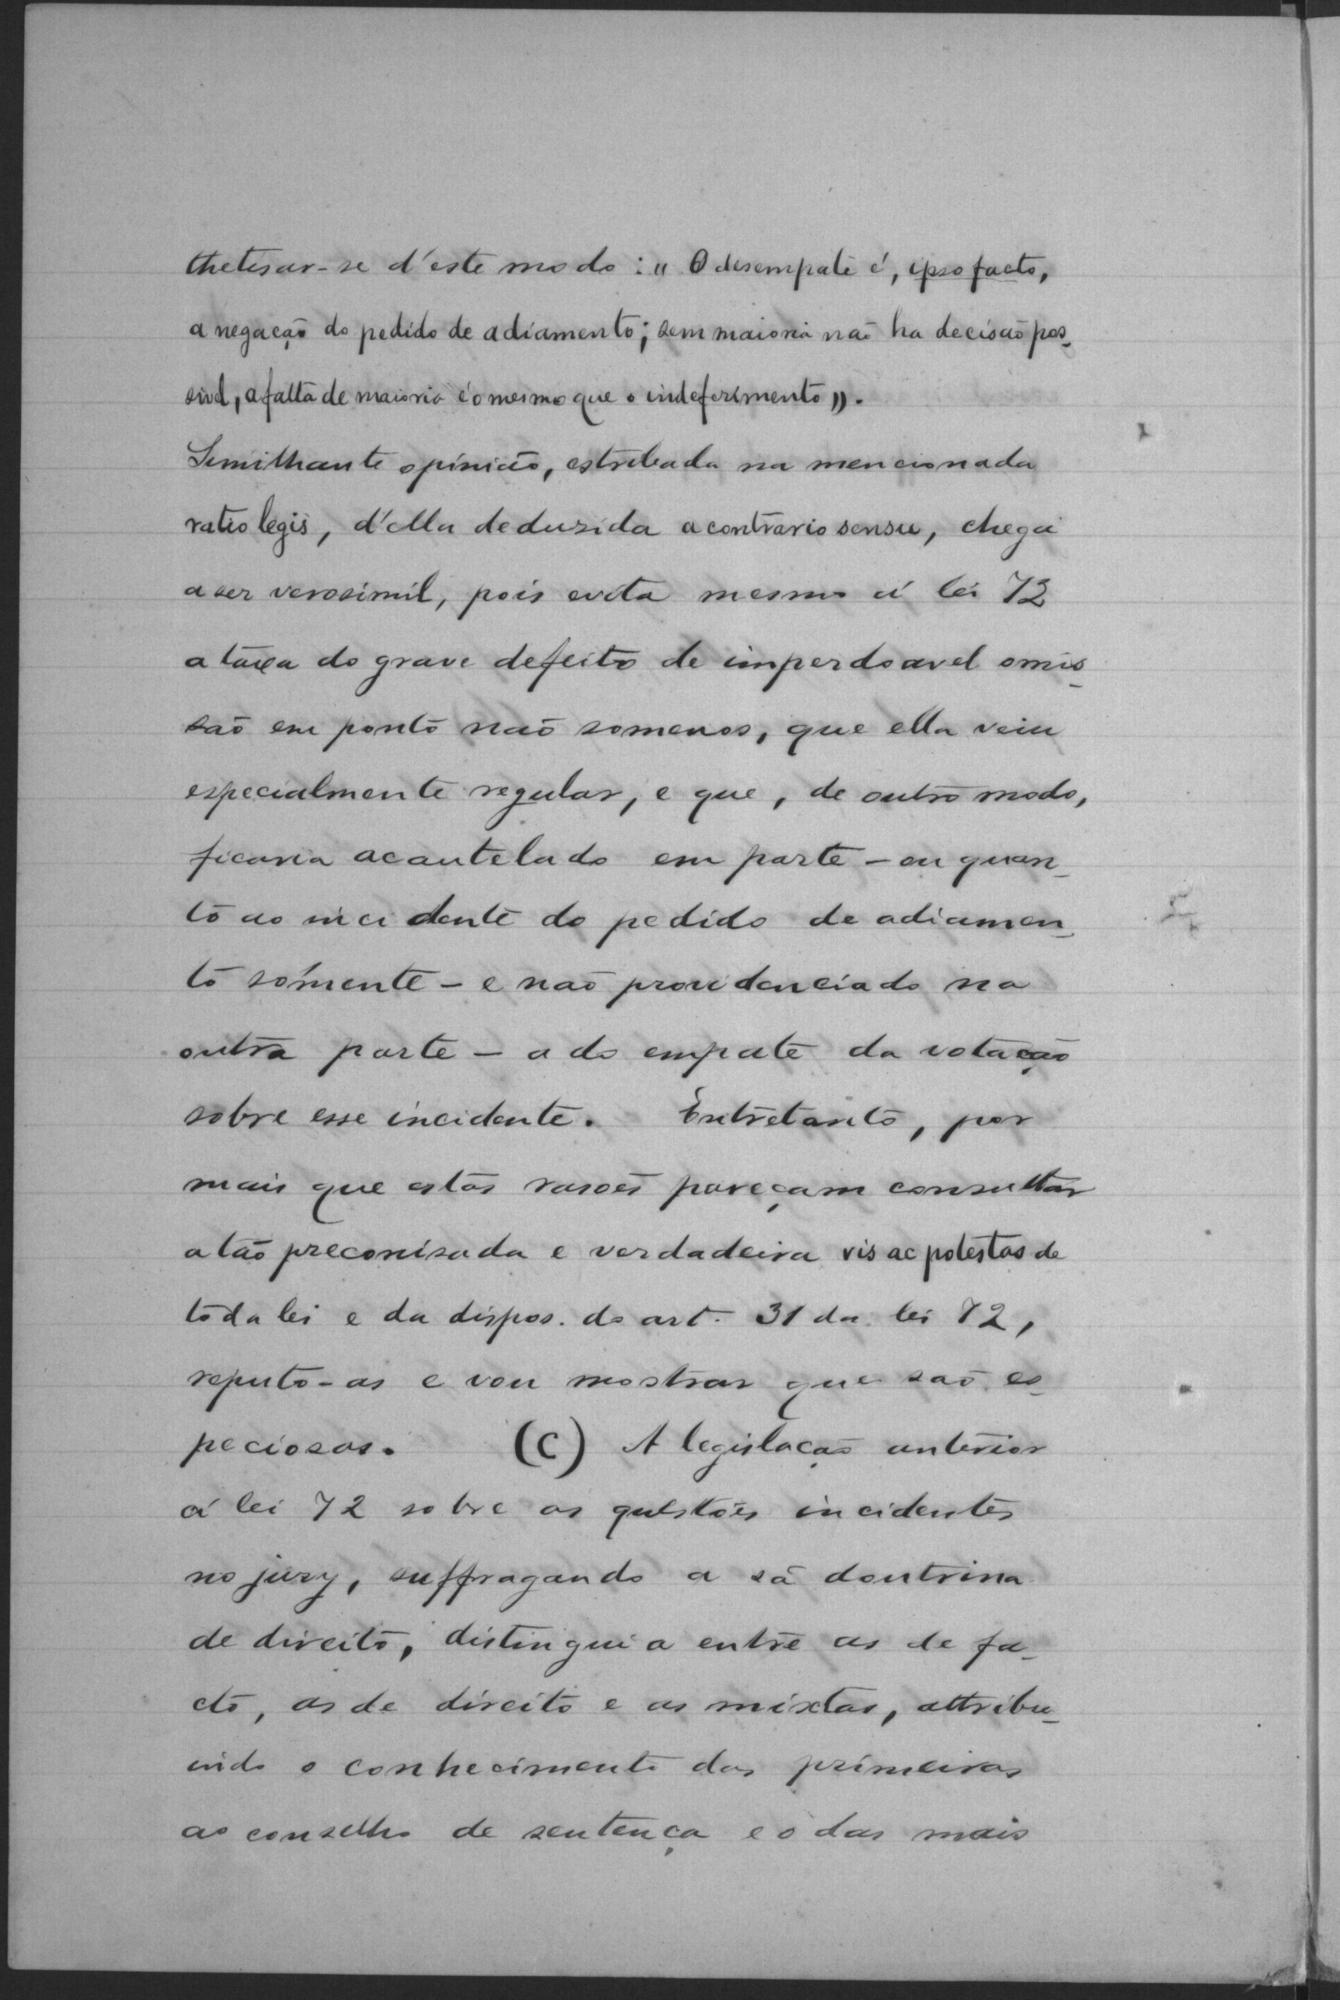 thetisar-se d'este modo: "O desempate é, ipso facto,
a negação do pedido de adiamento; sem maioria não ha decisão pos-
sivel, a falta de maioria é o mesmo que o indeferimento".
Similhante opinião, estribada na mencionada
ratio legis, d'ella dedusida a contrario sensu, chega
a ser verosimil, pois evita mesmo á lei 72
a taxa do grave defeito de imperdoavel omis-
são em ponto não somenos, que ella veiu
especialmente regular, e que, de outro modo,
ficaria acautelado em parte - ou quan-
to ao incidente do pedido de adiamen-
to sómente - e não providenciado na
outra parte - a do empate da votação
sobre esse incidente. Entretanto, por
mais que estas rasões pareçam consultar
a tão preconisada e verdadeira vis ac potestas de
toda lei e da dispos. do art. 31 da lei 72,
reputo-as e vou mostrar que são es-
peciosas. (C) A legislação anterior
á lei 72 sobre as questões incidentes
no jury, suffragando a sã doutrina
de direito, distinguia entre as de fa-
cto, as de direito e as mixtas, attribu-
indo o conhecimento das primeiras
ao conselho de sentença e o das mais